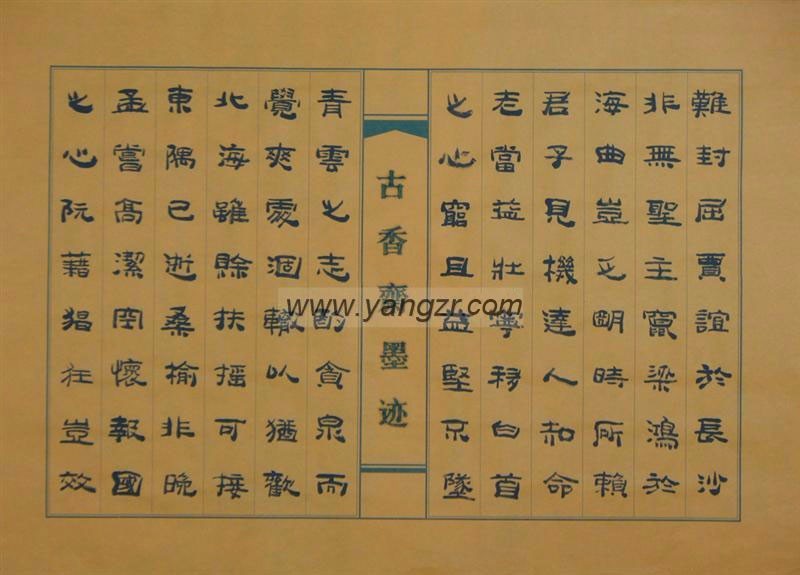 難封屈賈誼於長沙
非無聖主竄梁鴻於
海曲豈乏明時所賴
君子見機達人知命
老當益壯寧移白首
之心窮且益堅不墜
古香齋墨迹
青雲之志酌貪泉而
覺爽處涸轍以猶歡
北海雖賒扶搖可接
東隅已逝桑榆非晚
孟嘗高潔空懷報國
之心阮藉猖狂豈效
www.yangzr.com